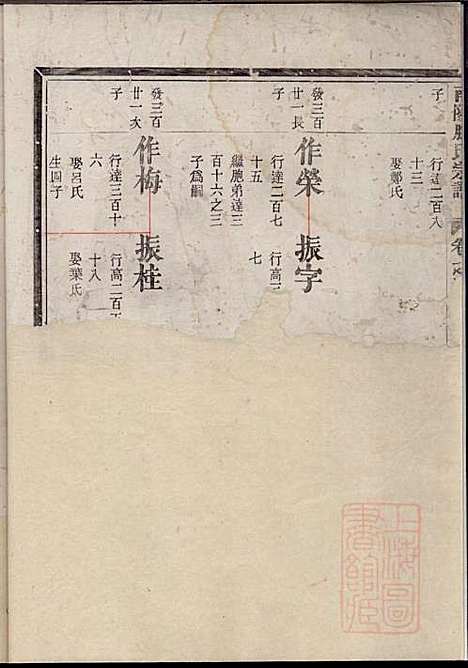 子
行達二百八
十三
娶鄭氏
發三百
廿一長
子
作榮
行達二百七
十五
繼胞弟達三
百十六之三
子爲嗣
振字
七
發三百
廿一次
子
作梅
行達三百十
六
娶呂氏
生四子
振桂
行高二百
十八
娶葉氏
上海圖
書館